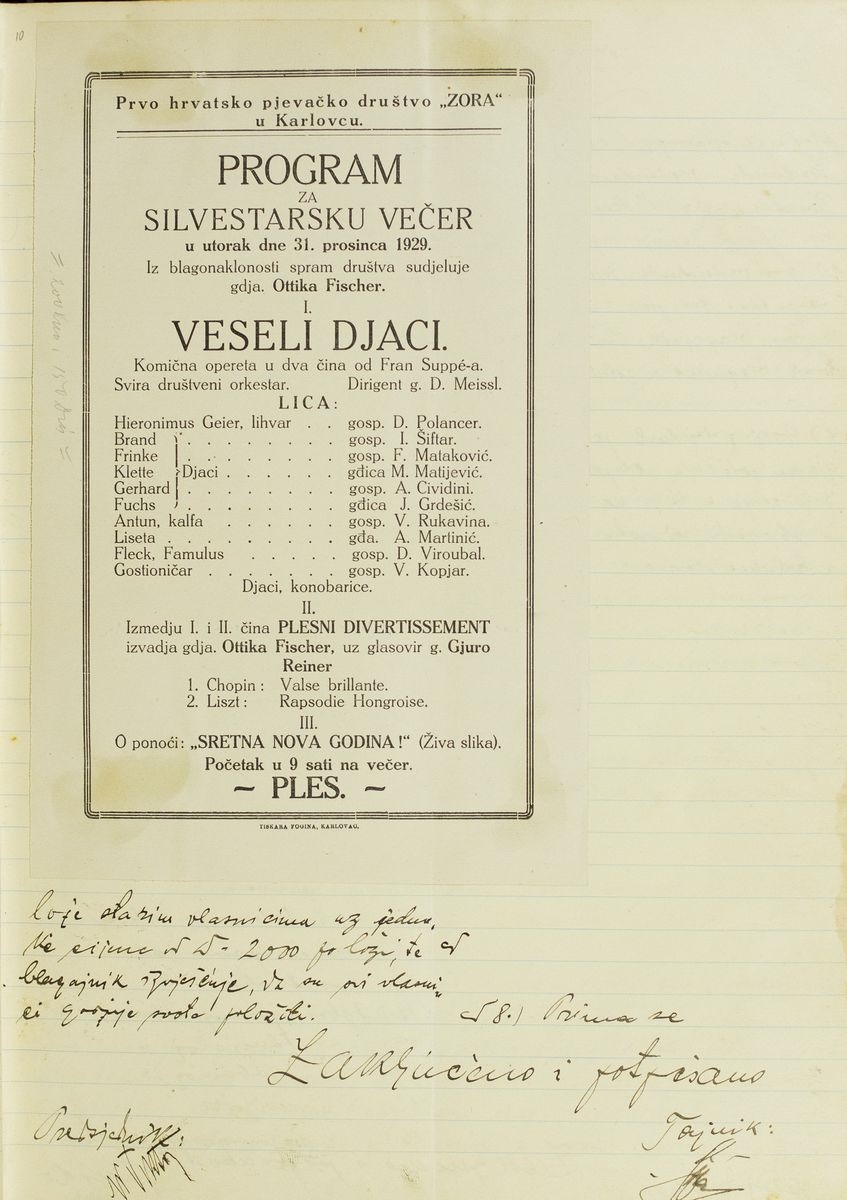 10
Prvo hrvatsko pjevačko društvo „ZORA“
u Karlovcu.
PROGRAM
ZA
SILVESTARSKU VEČER
u utorak dne 31. prosinca 1929.
Iz blagonaklonosti spram društva sudjeluje
gdja. Ottika Fischer.
I.
VESELI DJACI.
Komična opereta u dva čina od Fran Suppé-a.
Svira društveni orkestar. Dirigent g. D. Meissl.
LICA:
Hieronimus Geier, lihvar . . gosp. D. Polancer.
Brand . . . . . . . . gosp. I. Šiftar.
Frinke . . . . . . . . gosp. F. Mataković.
Klette Djaci . . . . . . gdica M. Matijević.
Gerhard . . . . . . . . gosp. A. Cividini.
Fuchs . . . . . . . . gdica J. Grdešić.
Antun, kalfa . . . . . . gosp. V. Rukavina.
Liseta . . . . . . . . . gđa. A. Martinić.
Fleck, Famulus . . . . . gosp. D. Viroubal.
Gostioničar . . . . . . . gosp. V. Kopjar.
Djaci, konobarice.
II.
Izmedju I. i II. čina PLESNI DIVERTISSEMENT
izvadja gdja. Ottika Fischer, uz glasovir g. Gjuro
Reiner
1. Chopin : Valse brillante.
2. Liszt : Rapsodie Hongroise.
III.
O ponoći: „SRETNA NOVA GODINA!“ (Živa slika).
Početak u 9 sati na večer.
~ PLES. ~
TISKARA FOGINA, KARLOVAC.
lože starim vlasnicima uz jedna,
ke cijene od D- 2000 po loži, te
blagajnik izvješćuje, da su svi vlasni„
ci gornje svote položili. ad 8.) Prima se
Zaključeno i potpisano
Predsjednik: Tajnik: